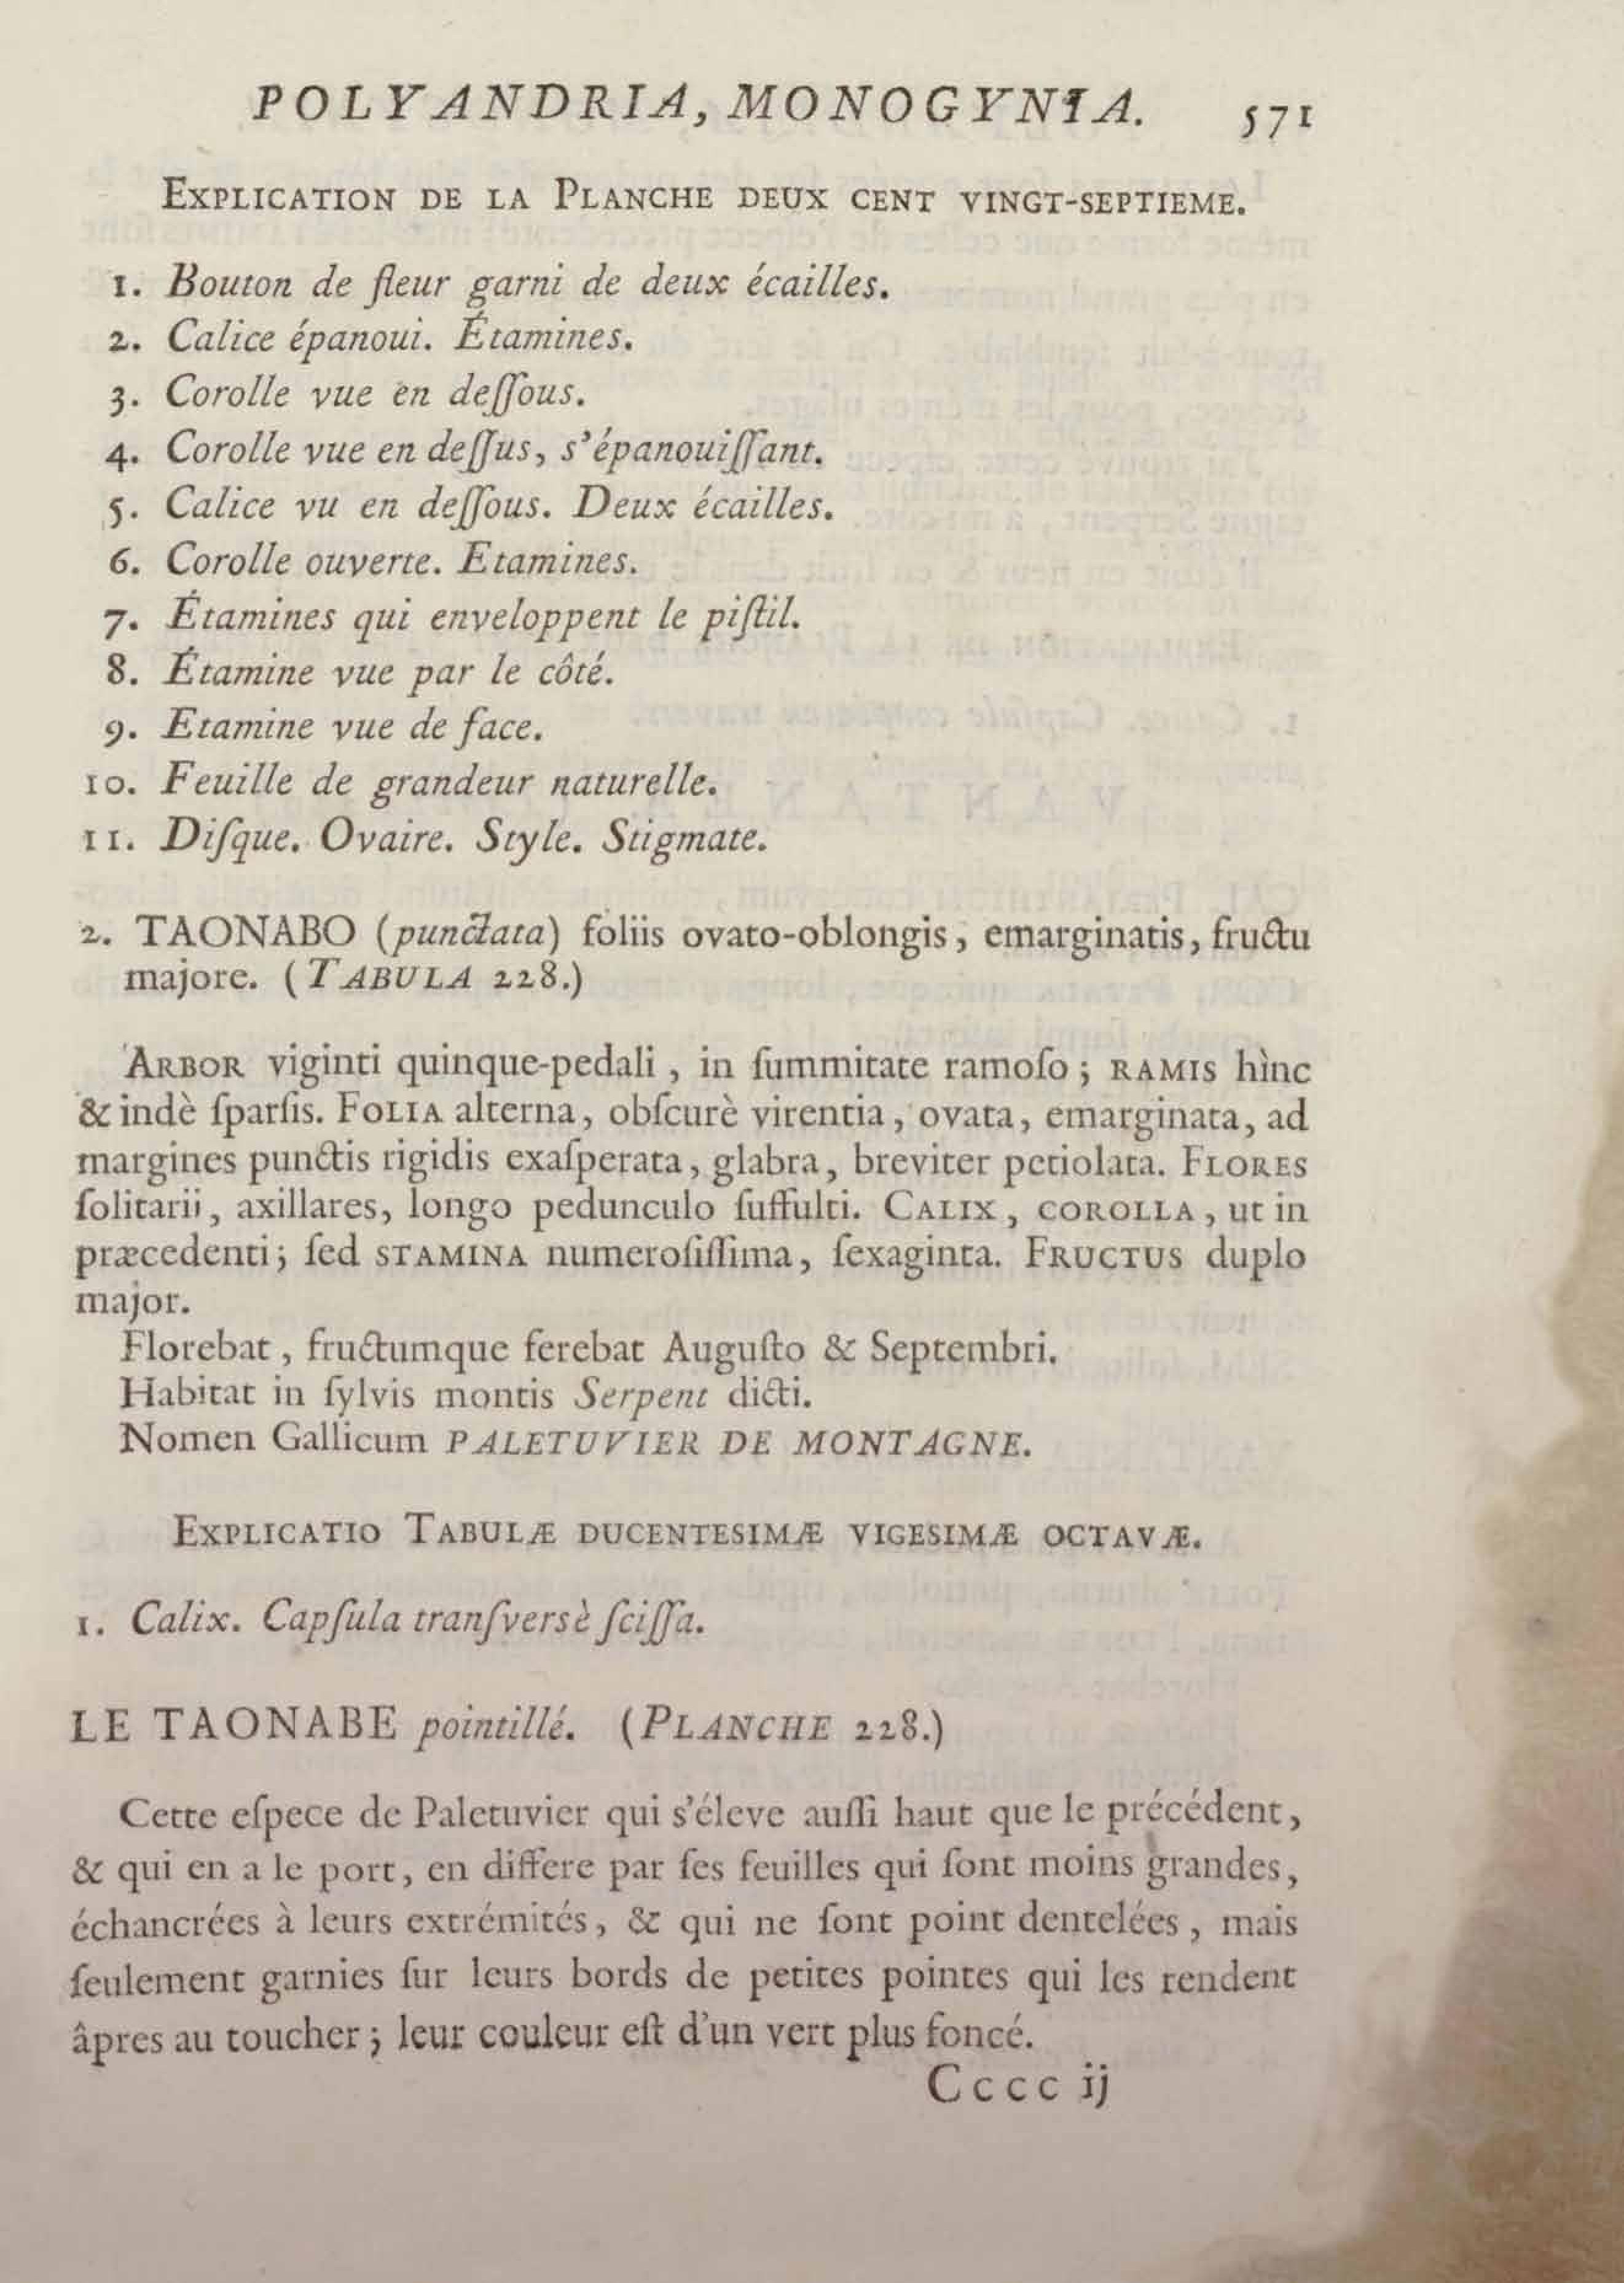 POLYANDRIA, MONOGYNIA. 571
EXPLICATION DE LA PLANCHE DEUX CENT VINGT-SEPTIEME.
1. Bouton de fleur garni de deux écailles.
2. Calice épanoui. Étamines.
3. Corolle vue en deſſous.
4. Corolle vue en deſſus, s'épanouiſſant.
5. Calice vu en deſſous. Deux écailles.
6. Corolle ouverte. Etamines.
7. Étamines qui enveloppent le piſtil.
8. Étamine vue par le côté.
9. Etamine vue de face.
10. Feuille de grandeur naturelle.
11. Diſque. Ovaire. Style. Stigmate.
2. TAONABO (punctata) foliis ovato-oblongis, emarginatis, fructu
majore. (TABULA 228.)
ARBOR viginti quinque-pedali, in ſummitate ramoſo; RAMIS hìnc
& indè ſparſis. FOLIA alterna, obſcurè virentia, ovata, emarginata, ad
margines punctis rigidis exaſperata, glabra, breviter petiolata. FLORES
ſolitarii, axillares, longo pedunculo ſuffulti. CALIX, COROLLA, ut in
præcedenti; ſed STAMINA numeroſiſſima, ſexaginta. FRUCTUS duplo
major.
Florebat, fructumque ferebat Auguſto & Septembri.
Habitat in ſylvis montis Serpent dicti.
Nomen Gallicum PALETUVIER DE MONTAGNE.
EXPLICATIO TABULÆ DUCENTESIMÆ VIGESIMÆ OCTAVÆ.
1. Calix. Capſula tranſversè ſciſſa.
LE TAONABE pointillé. (PLANCHE 228.)
Cette eſpece de Paletuvier qui s'éleve auſſi haut que le précédent,
& qui en a le port, en differe par ſes feuilles qui ſont moins grandes,
échancrées à leurs extrémités, & qui ne ſont point dentelées, mais
ſeulement garnies ſur leurs bords de petites pointes qui les rendent
âpres au toucher; leur couleur eſt d'un vert plus foncé.
Cccc ij